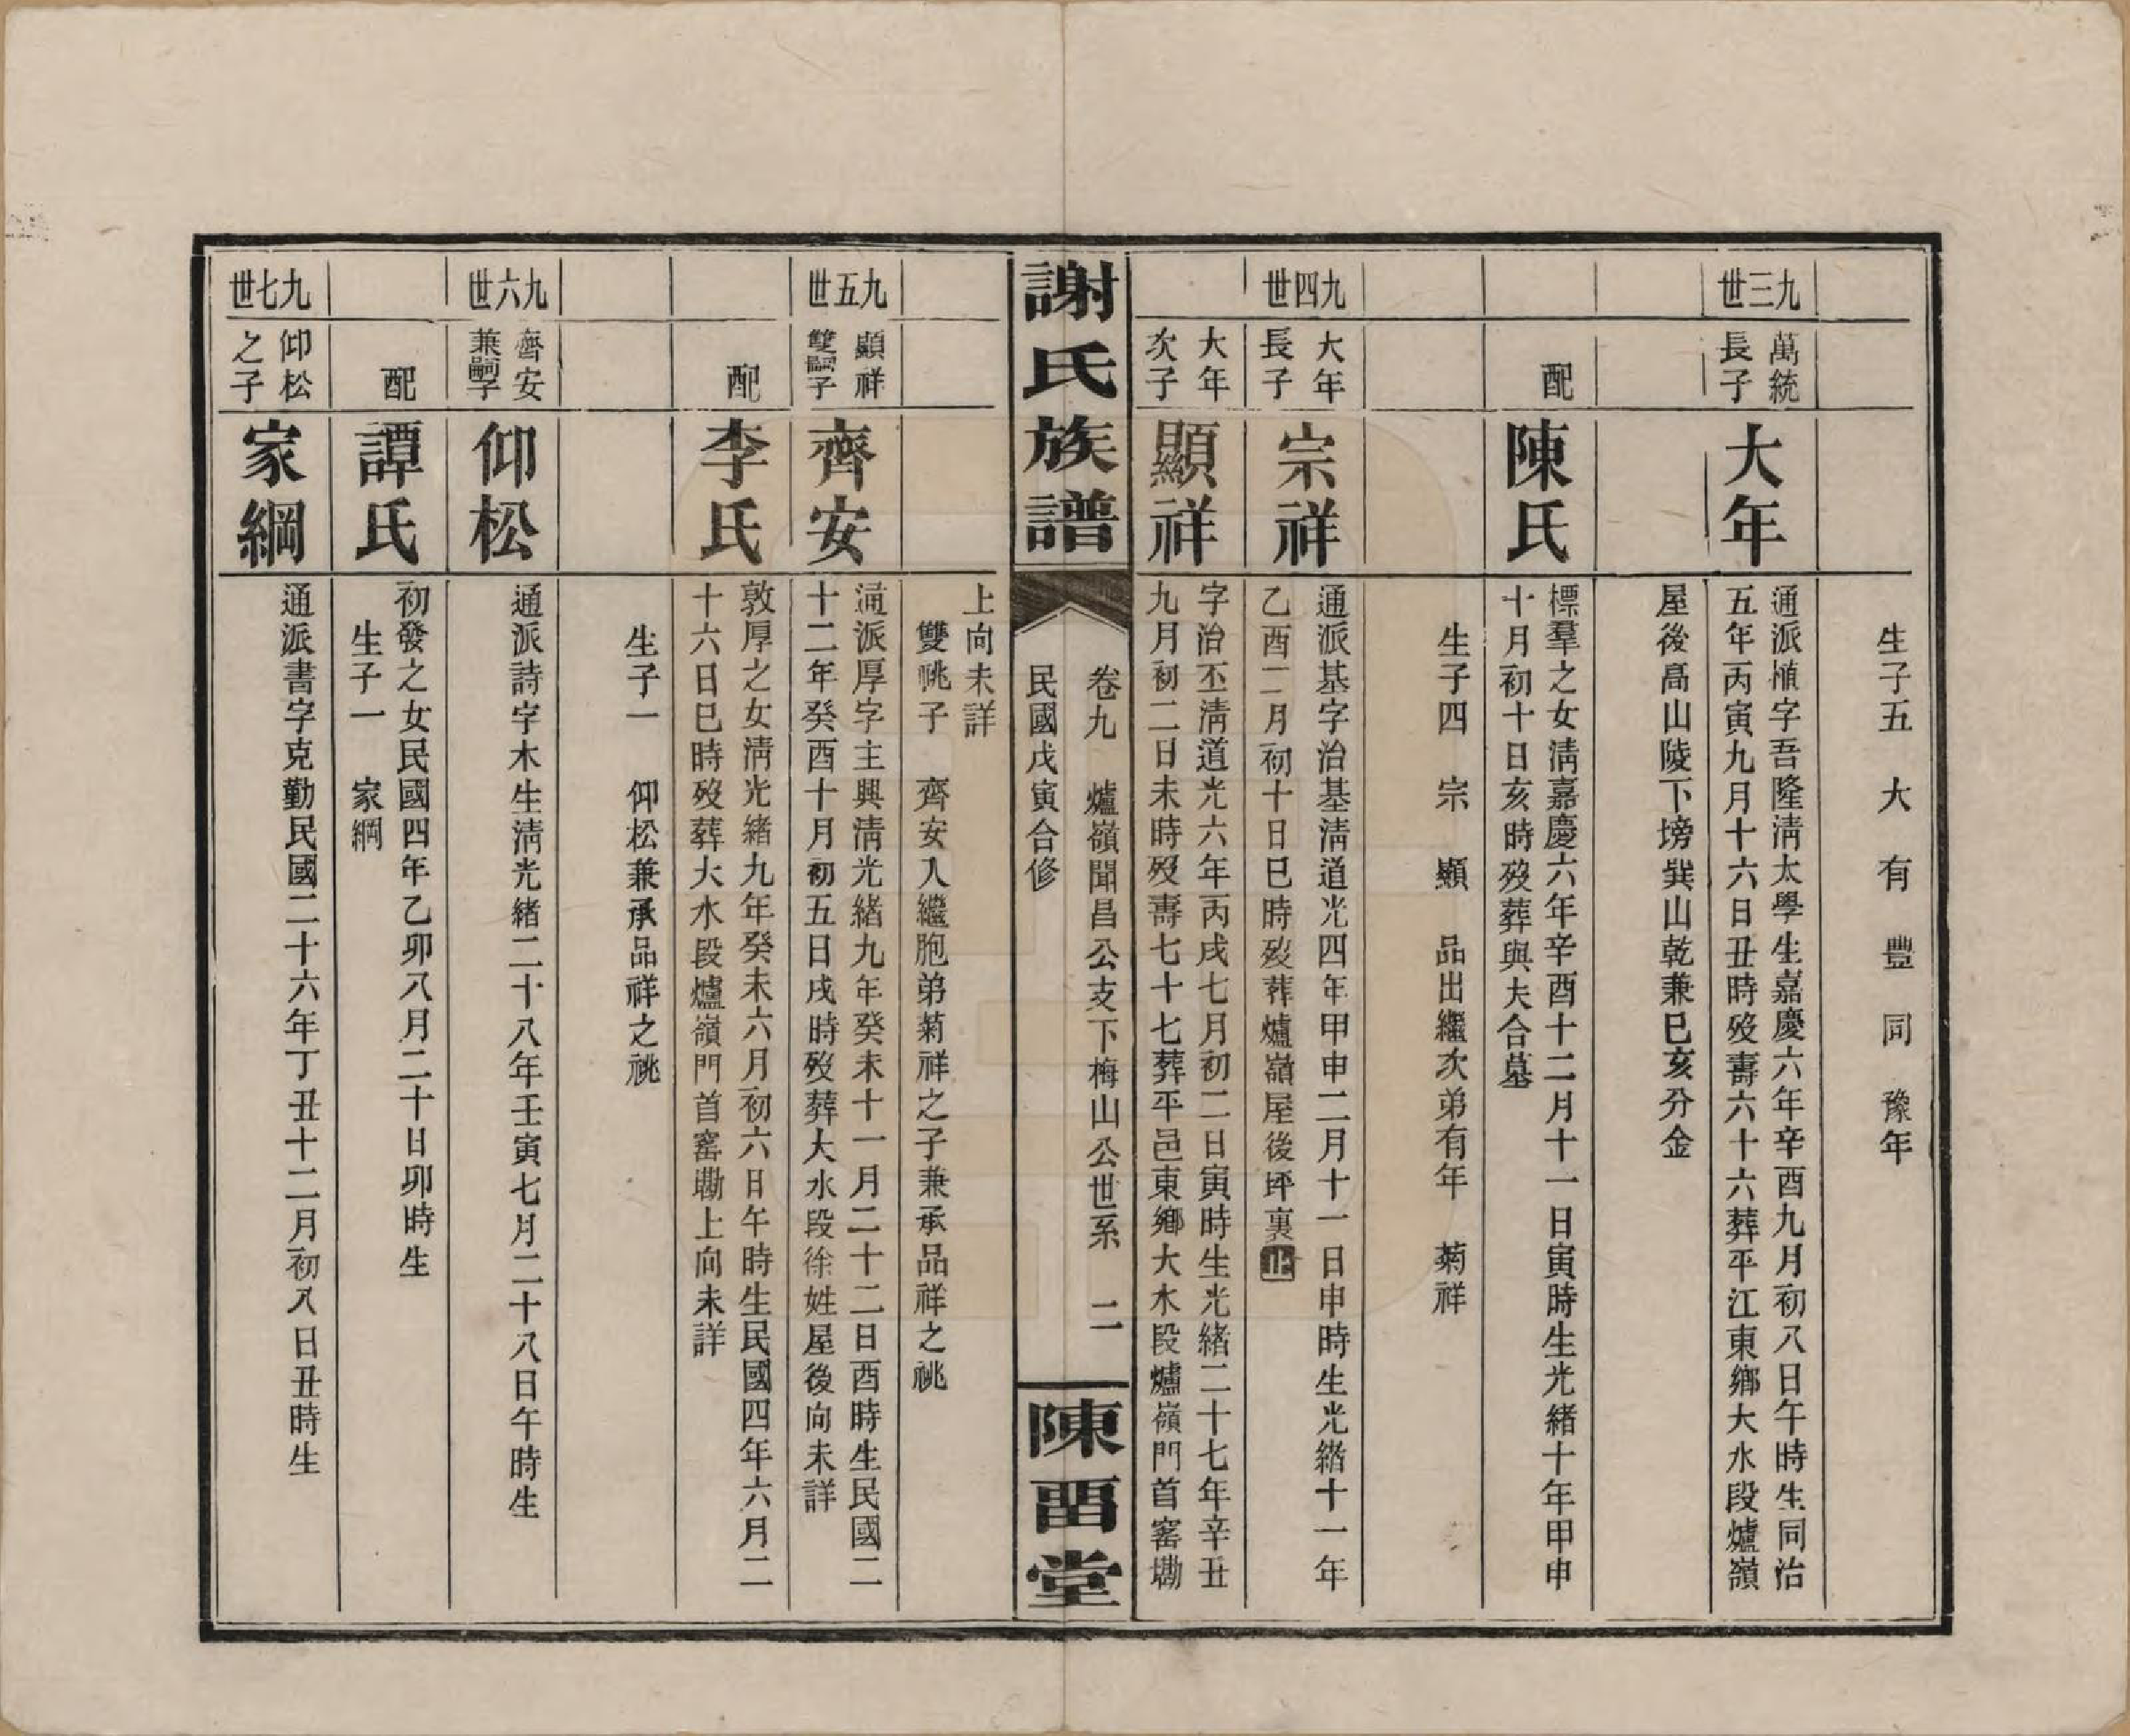 生子五　大　有　豐　同　豫年
九三世
萬統
長子
大年
通派楨字吾隆淸太學生嘉慶六年辛酉九月初八日午時生同治
五年丙寅九月十六日丑時歿壽六十六葬平江東鄉大水段爐嶺
屋後高山陵下塝巽山乾兼巳亥分金
配
陳氏
標羣之女淸嘉慶六年辛酉十二月十一日寅時生光緒十年甲申
十月初十日亥時歿葬與夫合墓
生子四　宗　顯　品出繼次弟有年　菊祥
九四世
大年
長子
宗祥
通派基字治基淸道光四年甲申二月十一日申時生光緒十一年
乙酉二月初十日巳時歿葬爐嶺屋後坪裏止
大年
次子
顯祥
字治丕淸道光六年丙戌七月初二日寅時生光緒二十七年辛丑
九月初二日未時歿壽七十七葬平邑東鄉大水段爐嶺門首窰塪
謝氏族譜
卷九　爐嶺聞昌公支下梅山公世系　二
民國戊寅合修
陳畱堂
上向未詳
雙祧子　齊安入繼胞弟菊祥之子兼承品祥之祧
九五世
顯祥
雙嗣子
齊安
通派厚字主興淸光緒九年癸未十一月二十二日酉時生民國二
十二年癸酉十月初五日戌時歿葬大水段徐姓屋後向未詳
配
李氏
敦厚之女淸光緒九年癸未六月初六日午時生民國四年六月二
十六日巳時歿葬大水段爐嶺門首窰塪上向未詳
生子一　仰松兼承品祥之祧
九六世
齊安
兼嗣子
仰松
通派詩字木生淸光緒二十八年壬寅七月二十八日午時生
配
譚氏
初發之女民國四年乙卯八月二十日卯時生
生子一　家綱
九七世
仰松
之子
家綱
通派書字克勤民國二十六年丁丑十二月初八日丑時生